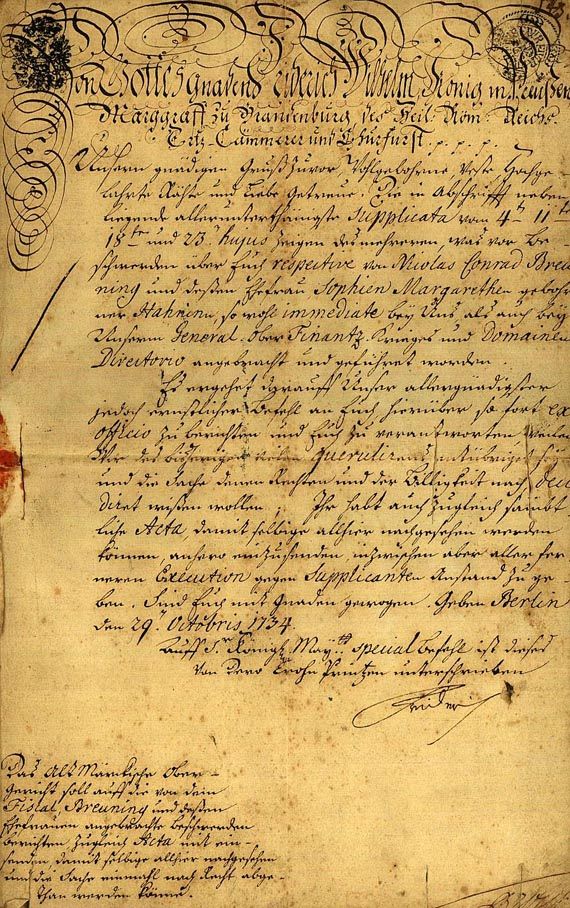 Von Gottes gnaden Friderich Wilhelm, König in Preußen
Marggraff zu Brandenburg des Heil. Röm. Reichs
Ertz-Cämmerer und Churfürst. p. p. p. p.
Unsern gnädigen Gruß zuvor, Wohlgebohrne, Veste, Hochge
lahrte Räthe und liebe getreue. Die in Abschrifft neben
liegende allerunterthänigste Supplicata vom 4ten 11ten
18ten und 23ten hujus zeigen des mehreren, was vor Be
schwerden über Euch respective von Nicolas Conrad Breu
ning und deßen Ehefrau Sophien Margarethen gebohr
ner Hahnen, so wohl immediate bey Uns als auch bey
Unserm General-Ober-Finantz-Krieges und Domainen
Directorio angebracht und geführet worden
Es ergehet darauff Unser allergnädigster
jedoch ernstlicher Befehl an Euch hierüber so fort ex
officio zu berichten und Euch zu verantworten weilen
Wir des bisherigen vielen querulirens
und die Sache denen Rechten und der Billigkeit nach deci
diret wißen wollen. Ihr habt auch zugleich sämbt
liche Acta, damit selbige allhier nachgesehen werden
können, anhero einzusenden, inzwischen aber aller fer
neren Execution gegen Supplicanten Anstand zu ge
ben. Sind Euch mit Gnaden gewogen. Geben Berlin
den 29ten Octobris 1734
Auff Sr. Königl. Mayt. special Befehl ist dieses
von dero Crohn Printzen unterschrieben
Friderich
Das Alt Märckische Ober-
Gericht soll auff die von dem
Fiscal Breuning und deßen
Ehefrauen angebrachte beschwerden
berichten zugleich Acta mit ein
senden, damit selbige allhier nachgesehen
und die Sache einmahl nach Recht abge
than werden könne.